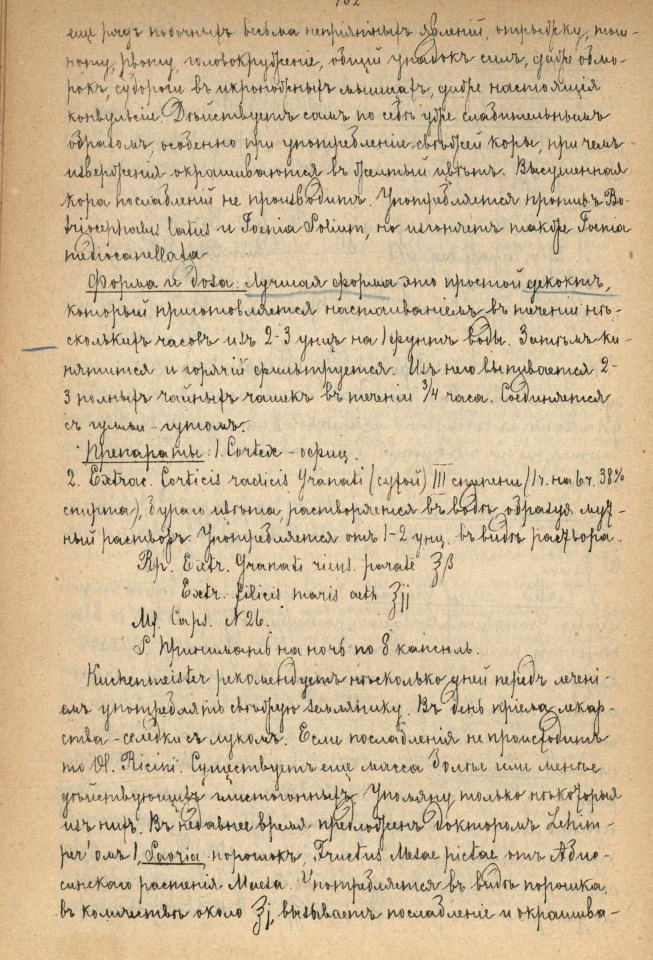 еще рядъ побочныхъ весьма непрiятныхъ явленiй, отрыжку, тош-
ноту, рвоту, головокруженiе, общiй упадокъ силъ, даже обмо-
рокъ, судороги въ икроножныхъ мышцахъ, даже настоящiя
конвульсiи. Дѣйствуетъ самъ по себѣ уже слабительнымъ
образомъ, особенно при употребленiе свѣжей коры, при чемъ
изверженiя окрашиваются въ желтый цвѣтъ. Высушенная
кора послабленiй не производитъ. Употребляется противъ Bo-
triocephalus latus и Toenia Solium, но изгоняетъ также Toenia
mediocanellata
Форма и доза: Лучшая форма это простой декоктъ,
который приготовляется настаиванiемъ въ теченiи нѣ-
сколькихъ часовъ изъ 2-3 унцъ на 1 фунтъ воды. Затѣмъ ки-
пятится и горячiй фильтруется. Изъ него выпивается 2-
3 полныхъ чайныхъ чашекъ въ теченiи 3/4 часа. Соединяется
съ гумми-гутомъ.
Препараты: 1. Cortex - офиц.
2. Extrac. Corticis radicis Granati (сухой) III степени (1ч. на 6ч. 38%
спирта), бураго цвѣта, растворяется въ водѣ образуя мут-
ный растворъ. Употребляется отъ 1-2 унц. въ видѣ раствора.
Rp. Extr. Granati recens. parate ʒβ
Extr. filicis maris aeth ʒjj
Mf. Caps. N 26.
S Принимать на ночь по 8 капсюль.
Kuchenmeister рекомендуетъ нѣсколько дней передъ леченi-
емъ употреблять свѣжую землянику. Въ день прiема лекар-
ства - селедки съ лукомъ. Если послабленiя не происходитъ
то Ol. Ricini. Существуетъ еще масса болѣе или менѣе
дѣйствующихъ глистогонныхъ. Упомяну только нѣкоторыя
изъ нихъ. Въ недавнее время предложенъ докторомъ Schim-
per'омъ 1, Saoria порошокъ, Fructus Mesae pictae отъ Абис-
синскаго растенiя Maesa. Употребляется въ видѣ порошка,
въ количествѣ около ʒj, вызываетъ послабленiе и окрашива-